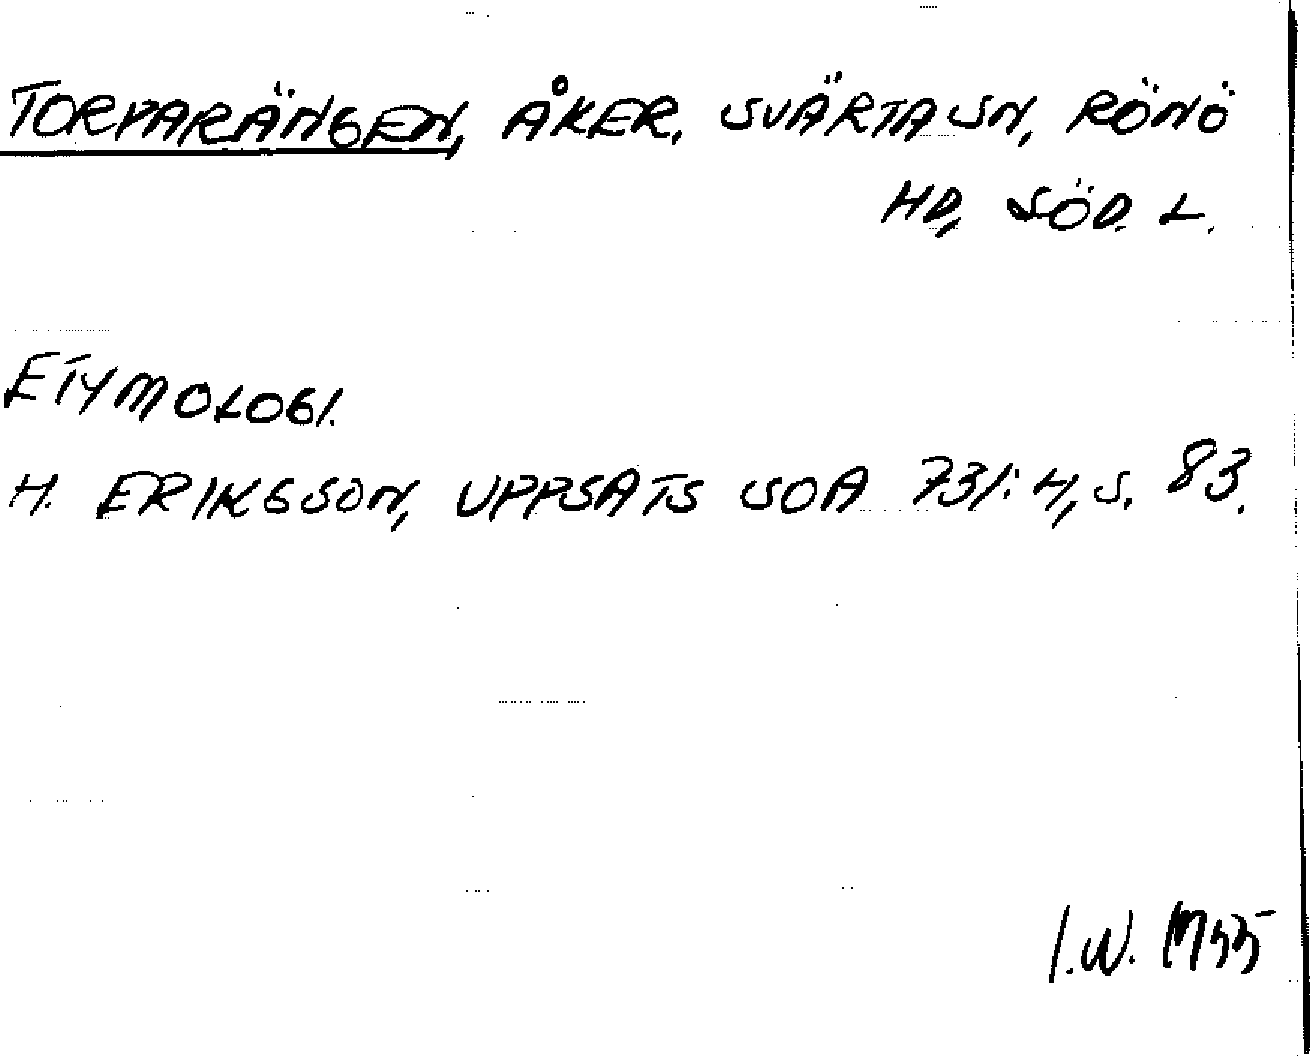 TORPARÄNGEN, ÅKER, SVÄRTA SN, RÖNÖ
HD, SÖD. L.
ETYMOLOGI.
H. ERIKSSON, UPPSATS SOA 731:4, S. 83.
I.W.